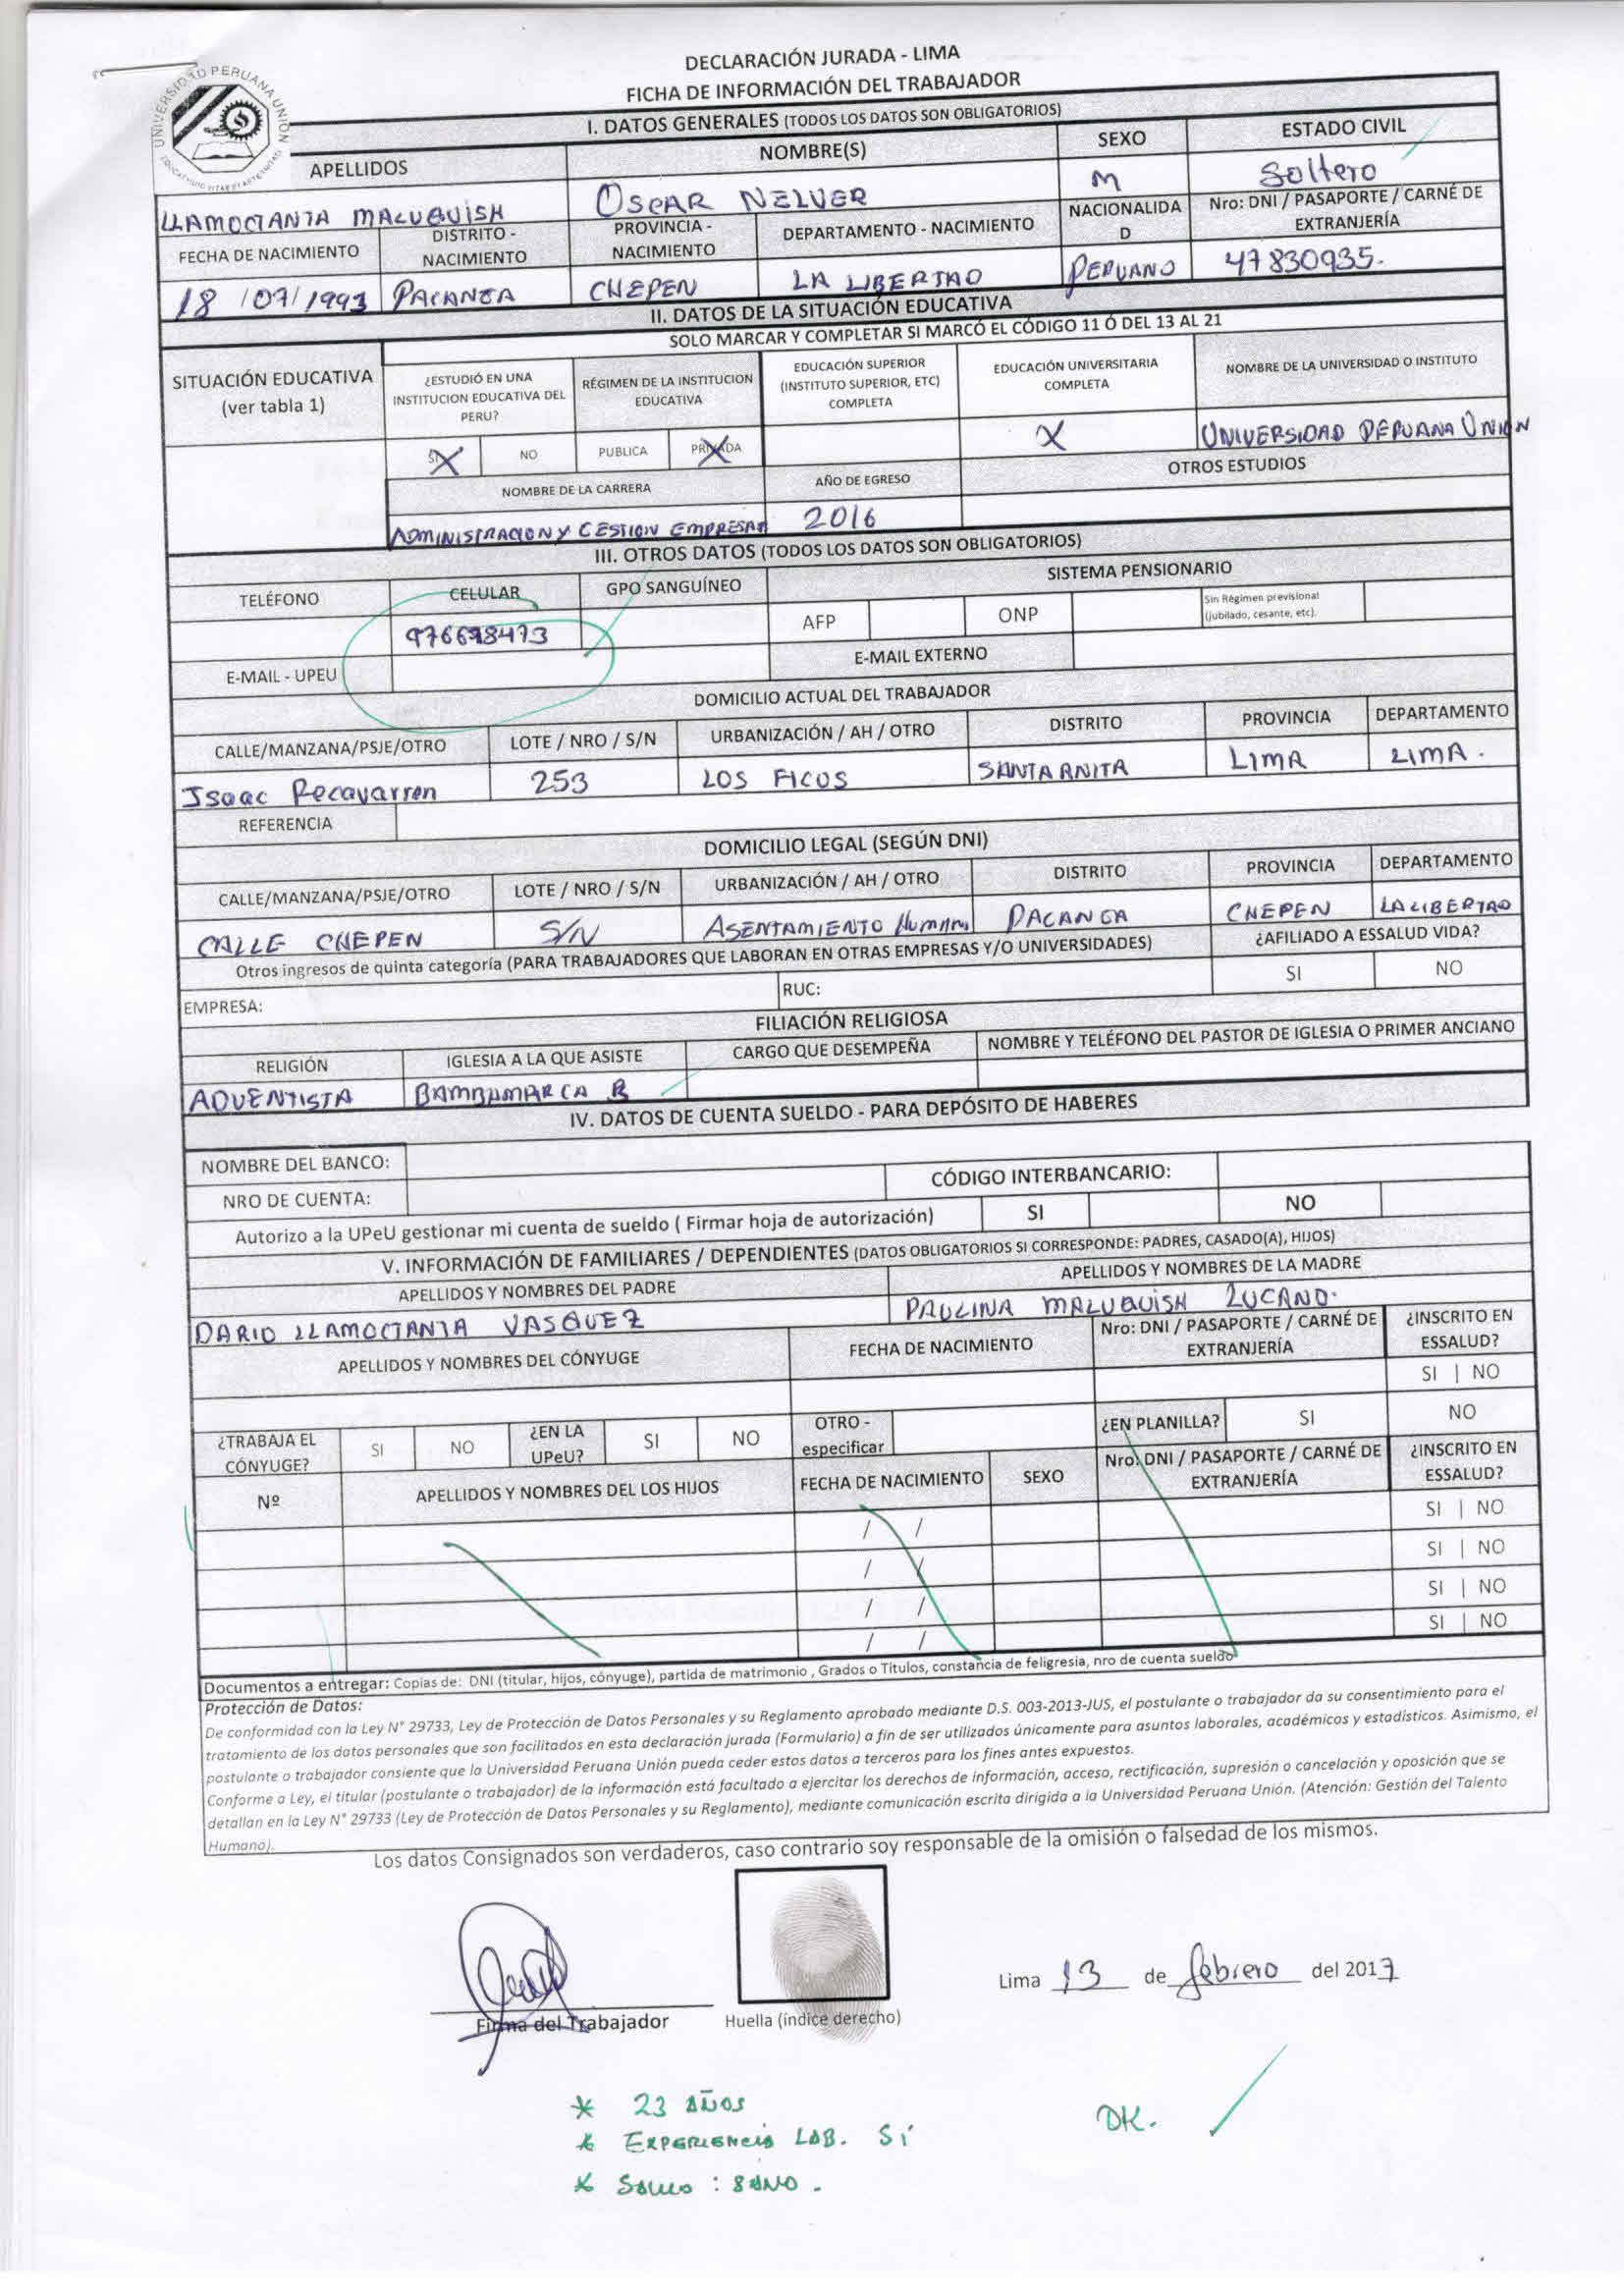 DECLARACIÓN JURADA - LIMA
FICHA DE INFORMACIÓN DEL TRABAJADOR
UNIVERSIDAD PERUANA UNIÓN
I. DATOS GENERALES (TODOS LOS DATOS SON OBLIGATORIOS)
APELLIDOS NOMBRE(S) SEXO ESTADO CIVIL
LLAMOCTANTA MALUQUISH OSCAR NELVER M Soltero
FECHA DE NACIMIENTO DISTRITO - NACIMIENTO PROVINCIA - NACIMIENTO DEPARTAMENTO - NACIMIENTO NACIONALIDAD Nro: DNI / PASAPORTE / CARNÉ DE EXTRANJERÍA
18 /07/1993 PACANGA CHEPEN LA LIBERTAD PERUANO 47830935.
II. DATOS DE LA SITUACIÓN EDUCATIVA
SOLO MARCAR Y COMPLETAR SI MARCÓ EL CÓDIGO 11 Ó DEL 13 AL 21
SITUACIÓN EDUCATIVA (ver tabla 1) ¿ESTUDIÓ EN UNA INSTITUCION EDUCATIVA DEL PERU? RÉGIMEN DE LA INSTITUCION EDUCATIVA EDUCACIÓN SUPERIOR (INSTITUTO SUPERIOR, ETC) COMPLETA EDUCACIÓN UNIVERSITARIA COMPLETA NOMBRE DE LA UNIVERSIDAD O INSTITUTO
SI X NO PUBLICA PRIVADA X X UNIVERSIDAD PERUANA UNIÓN
NOMBRE DE LA CARRERA AÑO DE EGRESO OTROS ESTUDIOS
ADMINISTRACION Y GESTION EMPRESAR 2016
III. OTROS DATOS (TODOS LOS DATOS SON OBLIGATORIOS)
TELÉFONO CELULAR GPO SANGUÍNEO SISTEMA PENSIONARIO
AFP ONP Sin Régimen previsional (jubilado, cesante, etc).
E-MAIL - UPEU E-MAIL EXTERNO
DOMICILIO ACTUAL DEL TRABAJADOR
CALLE/MANZANA/PSJE/OTRO LOTE / NRO / S/N URBANIZACIÓN / AH / OTRO DISTRITO PROVINCIA DEPARTAMENTO
Isaac Recavarren 253 LOS FICUS SANTA ANITA LIMA LIMA.
REFERENCIA
DOMICILIO LEGAL (SEGÚN DNI)
CALLE/MANZANA/PSJE/OTRO LOTE / NRO / S/N URBANIZACIÓN / AH / OTRO DISTRITO PROVINCIA DEPARTAMENTO
CALLE CHEPEN S/N ASENTAMIENTO HUMANO PACANGA CHEPEN LA LIBERTAD
Otros ingresos de quinta categoría (PARA TRABAJADORES QUE LABORAN EN OTRAS EMPRESAS Y/O UNIVERSIDADES) ¿AFILIADO A ESSALUD VIDA?
EMPRESA: RUC: SI NO
FILIACIÓN RELIGIOSA
RELIGIÓN IGLESIA A LA QUE ASISTE CARGO QUE DESEMPEÑA NOMBRE Y TELÉFONO DEL PASTOR DE IGLESIA O PRIMER ANCIANO
ADVENTISTA BAMBAMARCA B
IV. DATOS DE CUENTA SUELDO - PARA DEPÓSITO DE HABERES
NOMBRE DEL BANCO:
NRO DE CUENTA: CÓDIGO INTERBANCARIO:
Autorizo a la UPeU gestionar mi cuenta de sueldo ( Firmar hoja de autorización) SI NO
V. INFORMACIÓN DE FAMILIARES / DEPENDIENTES (DATOS OBLIGATORIOS SI CORRESPONDE: PADRES, CASADO(A), HIJOS)
APELLIDOS Y NOMBRES DEL PADRE APELLIDOS Y NOMBRES DE LA MADRE
DARIO LLAMOCTANTA VASQUEZ PAULINA MALUQUISH LUCANO.
APELLIDOS Y NOMBRES DEL CÓNYUGE FECHA DE NACIMIENTO Nro: DNI / PASAPORTE / CARNÉ DE EXTRANJERÍA ¿INSCRITO EN ESSALUD?
SI | NO
¿TRABAJA EL CÓNYUGE? SI NO ¿EN LA UPeU? SI NO OTRO - especificar ¿EN PLANILLA? SI NO
Nº APELLIDOS Y NOMBRES DEL LOS HIJOS FECHA DE NACIMIENTO SEXO Nro: DNI / PASAPORTE / CARNÉ DE EXTRANJERÍA ¿INSCRITO EN ESSALUD?
/ / SI | NO
/ / SI | NO
/ / SI | NO
/ / SI | NO
Documentos a entregar: Copias de: DNI (titular, hijos, cónyuge), partida de matrimonio , Grados o Titulos, constancia de feligresia, nro de cuenta sueldo
Protección de Datos:
De conformidad con la Ley N° 29733, Ley de Protección de Datos Personales y su Reglamento aprobado mediante D.S. 003-2013-JUS, el postulante o trabajador da su consentimiento para el
tratamiento de los datos personales que son facilitados en esta declaración jurada (Formulario) a fin de ser utilizados únicamente para asuntos laborales, académicos y estadísticos. Asimismo, el
postulante o trabajador consiente que la Universidad Peruana Unión pueda ceder estos datos a terceros para los fines antes expuestos.
Conforme a Ley, el titular (postulante o trabajador) de la información está facultado a ejercitar los derechos de información, acceso, rectificación, supresión o cancelación y oposición que se
detallan en la Ley N° 29733 (Ley de Protección de Datos Personales y su Reglamento), mediante comunicación escrita dirigida a la Universidad Peruana Unión. (Atención: Gestión del Talento
Humano).
Los datos Consignados son verdaderos, caso contrario soy responsable de la omisión o falsedad de los mismos.
Lima 13 de febrero del 2017
Firma del Trabajador Huella (índice derecho)
* 23 AÑOS
* EXPERIENCIA LAB. Sí OK.
* SALUD : SANO.